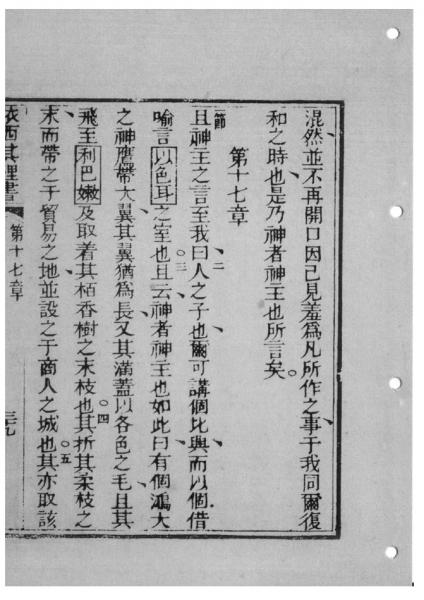 混然並不再開口因己見羞為凡所作之事于我同爾復
和之時也是乃神者神王也所言矣
第十七章
一節
且神王之言至我曰人之子也爾可講個比與而以個借
二
喻言以色耳之室也且云神者神王也如此曰有個鴻大
三
之神鷹帶大翼其翼猶為長又其滿蓋以各色之毛且其
飛至利巴嫩及取着其栢香樹之末枝也其折其柔枝之
四
末而帶之于貿易之地並設之于商人之城也其亦取該
五
依西其理書 第十七章 三九